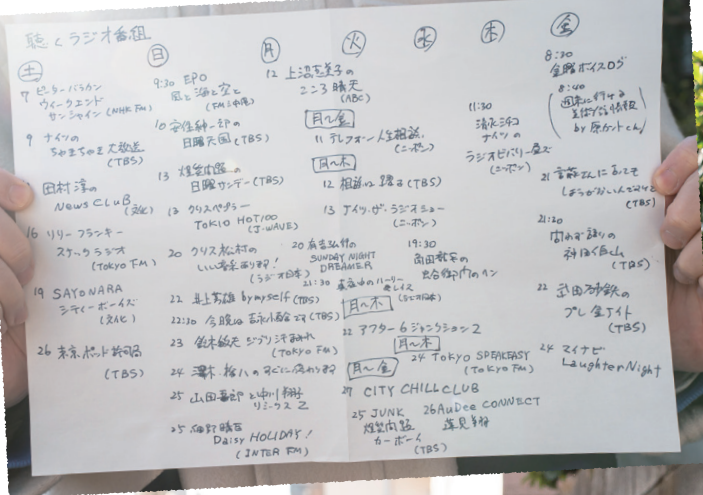 聴くラジオ番組
土
7 ピーター バラカン
ウィークエンド
サンシャイン (NHK FM)
9 ナイツの
ちゃきちゃき大放送
(TBS)
田村淳の
NEWS CLUB
(文化)
16 リリー フランキー
スナック ラジオ
(TOKYO FM)
19 SAYONARA
シティーボーイズ
(文化)
26 東京ポッド許可局
(TBS)
日
9:30 EPO
風と海と空と
(FM
10 安住紳一郎の
日曜天国 (TBS)
13 爆笑問題の
日曜サンデー (TBS)
13 クリスペプラー
TOKIO HOT100
(J-WAVE)
20 クリス松村の
いい音楽あります!
(ラジオ日本)
22 井上芳雄 by myself (TBS)
22:30 今晩は 吉永小百合です (TBS)
23 鈴木敏夫 ジブリ汗まみれ
(TOKYO FM)
24
25 山田五郎と中川翔子
リミックス Z
25 細野晴臣
Daisy HOLIDAY!
(INTER FM)
月
12 上沼恵美子の
こころ晴天
(ABC)
月〜金
11 テレフォン人生相談
(ニッポン)
月〜木
12 相談は踊る (TBS)
13 ナイツ・ザ・ラジオショー
(ニッポン)
20
SUNDAY NIGHT
DREAMER
21:30
火
水
19:30
角田
(ラジオ日本)
月〜木
22 アフター6ジャンクション2
月〜木
24 TOKYO SPEAKEASY
(TOKYO FM)
月〜金
27 CITY CHILL CLUB
25 JUNK
爆笑問題
カーボーイ
(TBS)
26 AuDee CONNECT
蓮見翔
木
11:30
清水ミチコ
ナイツの
ラジオビバリー昼ズ
(ニッポン)
金
8:30
金曜ボイスログ
8:40
週末に行ける
美術館情報
by
21
(TBS)
21:20
問わず語りの
神田伯山
(TBS)
22 武田砂鉄の
プレ金ナイト
(TBS)
24 マイナビ
Laughter Night